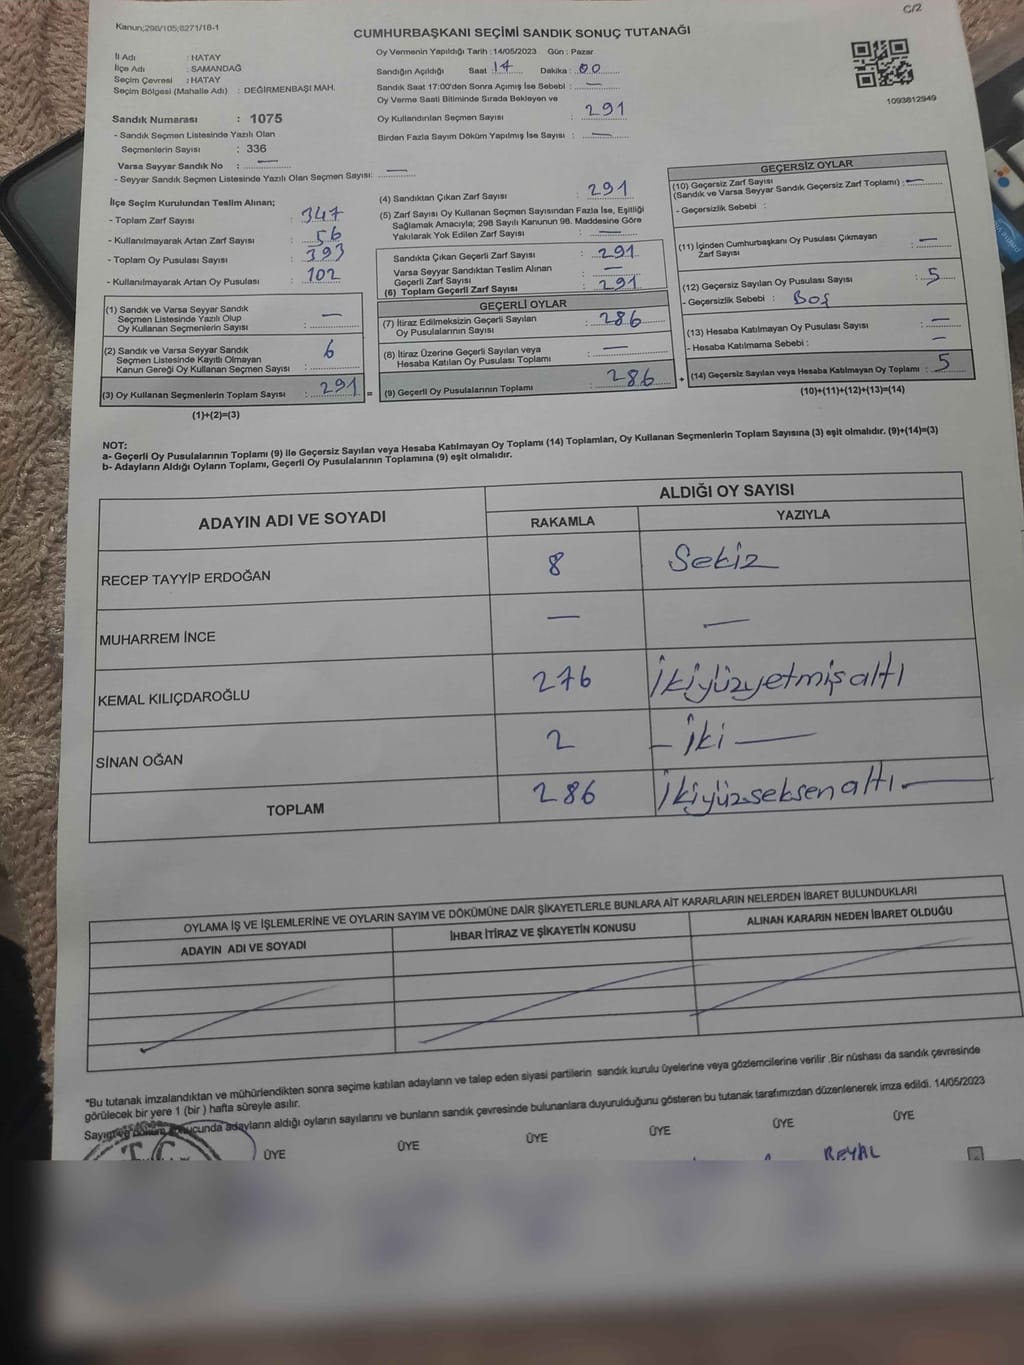 C/2
Kanun;298/105;6271/18-1
CUMHURBAŞKANI SEÇİMİ SANDIK SONUÇ TUTANAĞI
İl Adı : HATAY
İlçe Adı : SAMANDAĞ
Seçim Çevresi : HATAY
Seçim Bölgesi (Mahalle Adı) : DEĞİRMENBAŞI MAH.
Sandık Numarası : 1075
- Sandık Seçmen Listesinde Yazılı Olan
Seçmenlerin Sayısı : 336
Varsa Seyyar Sandık No : —
- Seyyar Sandık Seçmen Listesinde Yazılı Olan Seçmen Sayısı: —
Oy Vermenin Yapıldığı Tarih : 14/05/2023 Gün : Pazar
Sandığın Açıldığı Saat 17 Dakika : 00
Sandık Saat 17:00'den Sonra Açımış İse Sebebi : —
Oy Verme Saati Bitiminde Sırada Bekleyen ve
Oy Kullandırılan Seçmen Sayısı : 291
Birden Fazla Sayım Döküm Yapılmış İse Sayısı : —
1093812949
İlçe Seçim Kurulundan Teslim Alınan;
- Toplam Zarf Sayısı : 347
- Kullanılmayarak Artan Zarf Sayısı : 56
- Toplam Oy Pusulası Sayısı : 393
- Kullanılmayarak Artan Oy Pusulası : 102
(1) Sandık ve Varsa Seyyar Sandık
Seçmen Listesinde Yazılı Olup
Oy Kullanan Seçmenlerin Sayısı : —
(2) Sandık ve Varsa Seyyar Sandık
Seçmen Listesinde Kayıtlı Olmayan
Kanun Gereği Oy Kullanan Seçmen Sayısı : 6
(3) Oy Kullanan Seçmenlerin Toplam Sayısı : 291 =
(1)+(2)=(3)
(4) Sandıktan Çıkan Zarf Sayısı : 291
(5) Zarf Sayısı Oy Kullanan Seçmen Sayısından Fazla İse, Eşitliği
Sağlamak Amacıyla; 298 Sayılı Kanunun 98. Maddesine Göre
Yakılarak Yok Edilen Zarf Sayısı : —
Sandıkta Çıkan Geçerli Zarf Sayısı : 291
Varsa Seyyar Sandıktan Teslim Alınan
Geçerli Zarf Sayısı : —
(6) Toplam Geçerli Zarf Sayısı : 291
GEÇERLİ OYLAR
(7) İtiraz Edilmeksizin Geçerli Sayılan
Oy Pusulalarının Sayısı : 286
(8) İtiraz Üzerine Geçerli Sayılan veya
Hesaba Katılan Oy Pusulası Toplamı : —
(9) Geçerli Oy Pusulalarının Toplamı : 286 +
GEÇERSİZ OYLAR
(10) Geçersiz Zarf Sayısı
(Sandık ve Varsa Seyyar Sandık Geçersiz Zarf Toplamı) : —
- Geçersizlik Sebebi :
(11) İçinden Cumhurbaşkanı Oy Pusulası Çıkmayan
Zarf Sayısı : —
(12) Geçersiz Sayılan Oy Pusulası Sayısı : 5
- Geçersizlik Sebebi : Boş
(13) Hesaba Katılmayan Oy Pusulası Sayısı : —
- Hesaba Katılmama Sebebi : —
(14) Geçersiz Sayılan veya Hesaba Katılmayan Oy Toplamı : 5
(10)+(11)+(12)+(13)=(14)
NOT:
a- Geçerli Oy Pusulalarının Toplamı (9) ile Geçersiz Sayılan veya Hesaba Katılmayan Oy Toplamı (14) Toplamları, Oy Kullanan Seçmenlerin Toplam Sayısına (3) eşit olmalıdır. (9)+(14)=(3)
b- Adayların Aldığı Oyların Toplamı, Geçerli Oy Pusulalarının Toplamına (9) eşit olmalıdır.
ADAYIN ADI VE SOYADI ALDIĞI OY SAYISI
RAKAMLA YAZIYLA
RECEP TAYYİP ERDOĞAN 8 Sekiz
MUHARREM İNCE — —
KEMAL KILIÇDAROĞLU 276 İkiyüzyetmişaltı
SİNAN OĞAN 2 — İki —
TOPLAM 286 İkiyüzseksenaltı —
OYLAMA İŞ VE İŞLEMLERİNE VE OYLARIN SAYIM VE DÖKÜMÜNE DAİR ŞİKAYETLERLE BUNLARA AİT KARARLARIN NELERDEN İBARET BULUNDUKLARI
ADAYIN ADI VE SOYADI İHBAR İTİRAZ VE ŞİKAYETİN KONUSU ALINAN KARARIN NEDEN İBARET OLDUĞU
*Bu tutanak imzalandıktan ve mühürlendikten sonra seçime katılan adayların ve talep eden siyasi partilerin sandık kurulu üyelerine veya gözlemcilerine verilir .Bir nüshası da sandık çevresinde
görülecek bir yere 1 (bir ) hafta süreyle asılır.
Sayım ve döküm sonucunda adayların aldığı oyların sayılarını ve bunların sandık çevresinde bulunanlara duyurulduğunu gösteren bu tutanak tarafımızdan düzenlenerek imza edildi. 14/05/2023
ÜYE ÜYE ÜYE ÜYE ÜYE ÜYE
T.C.